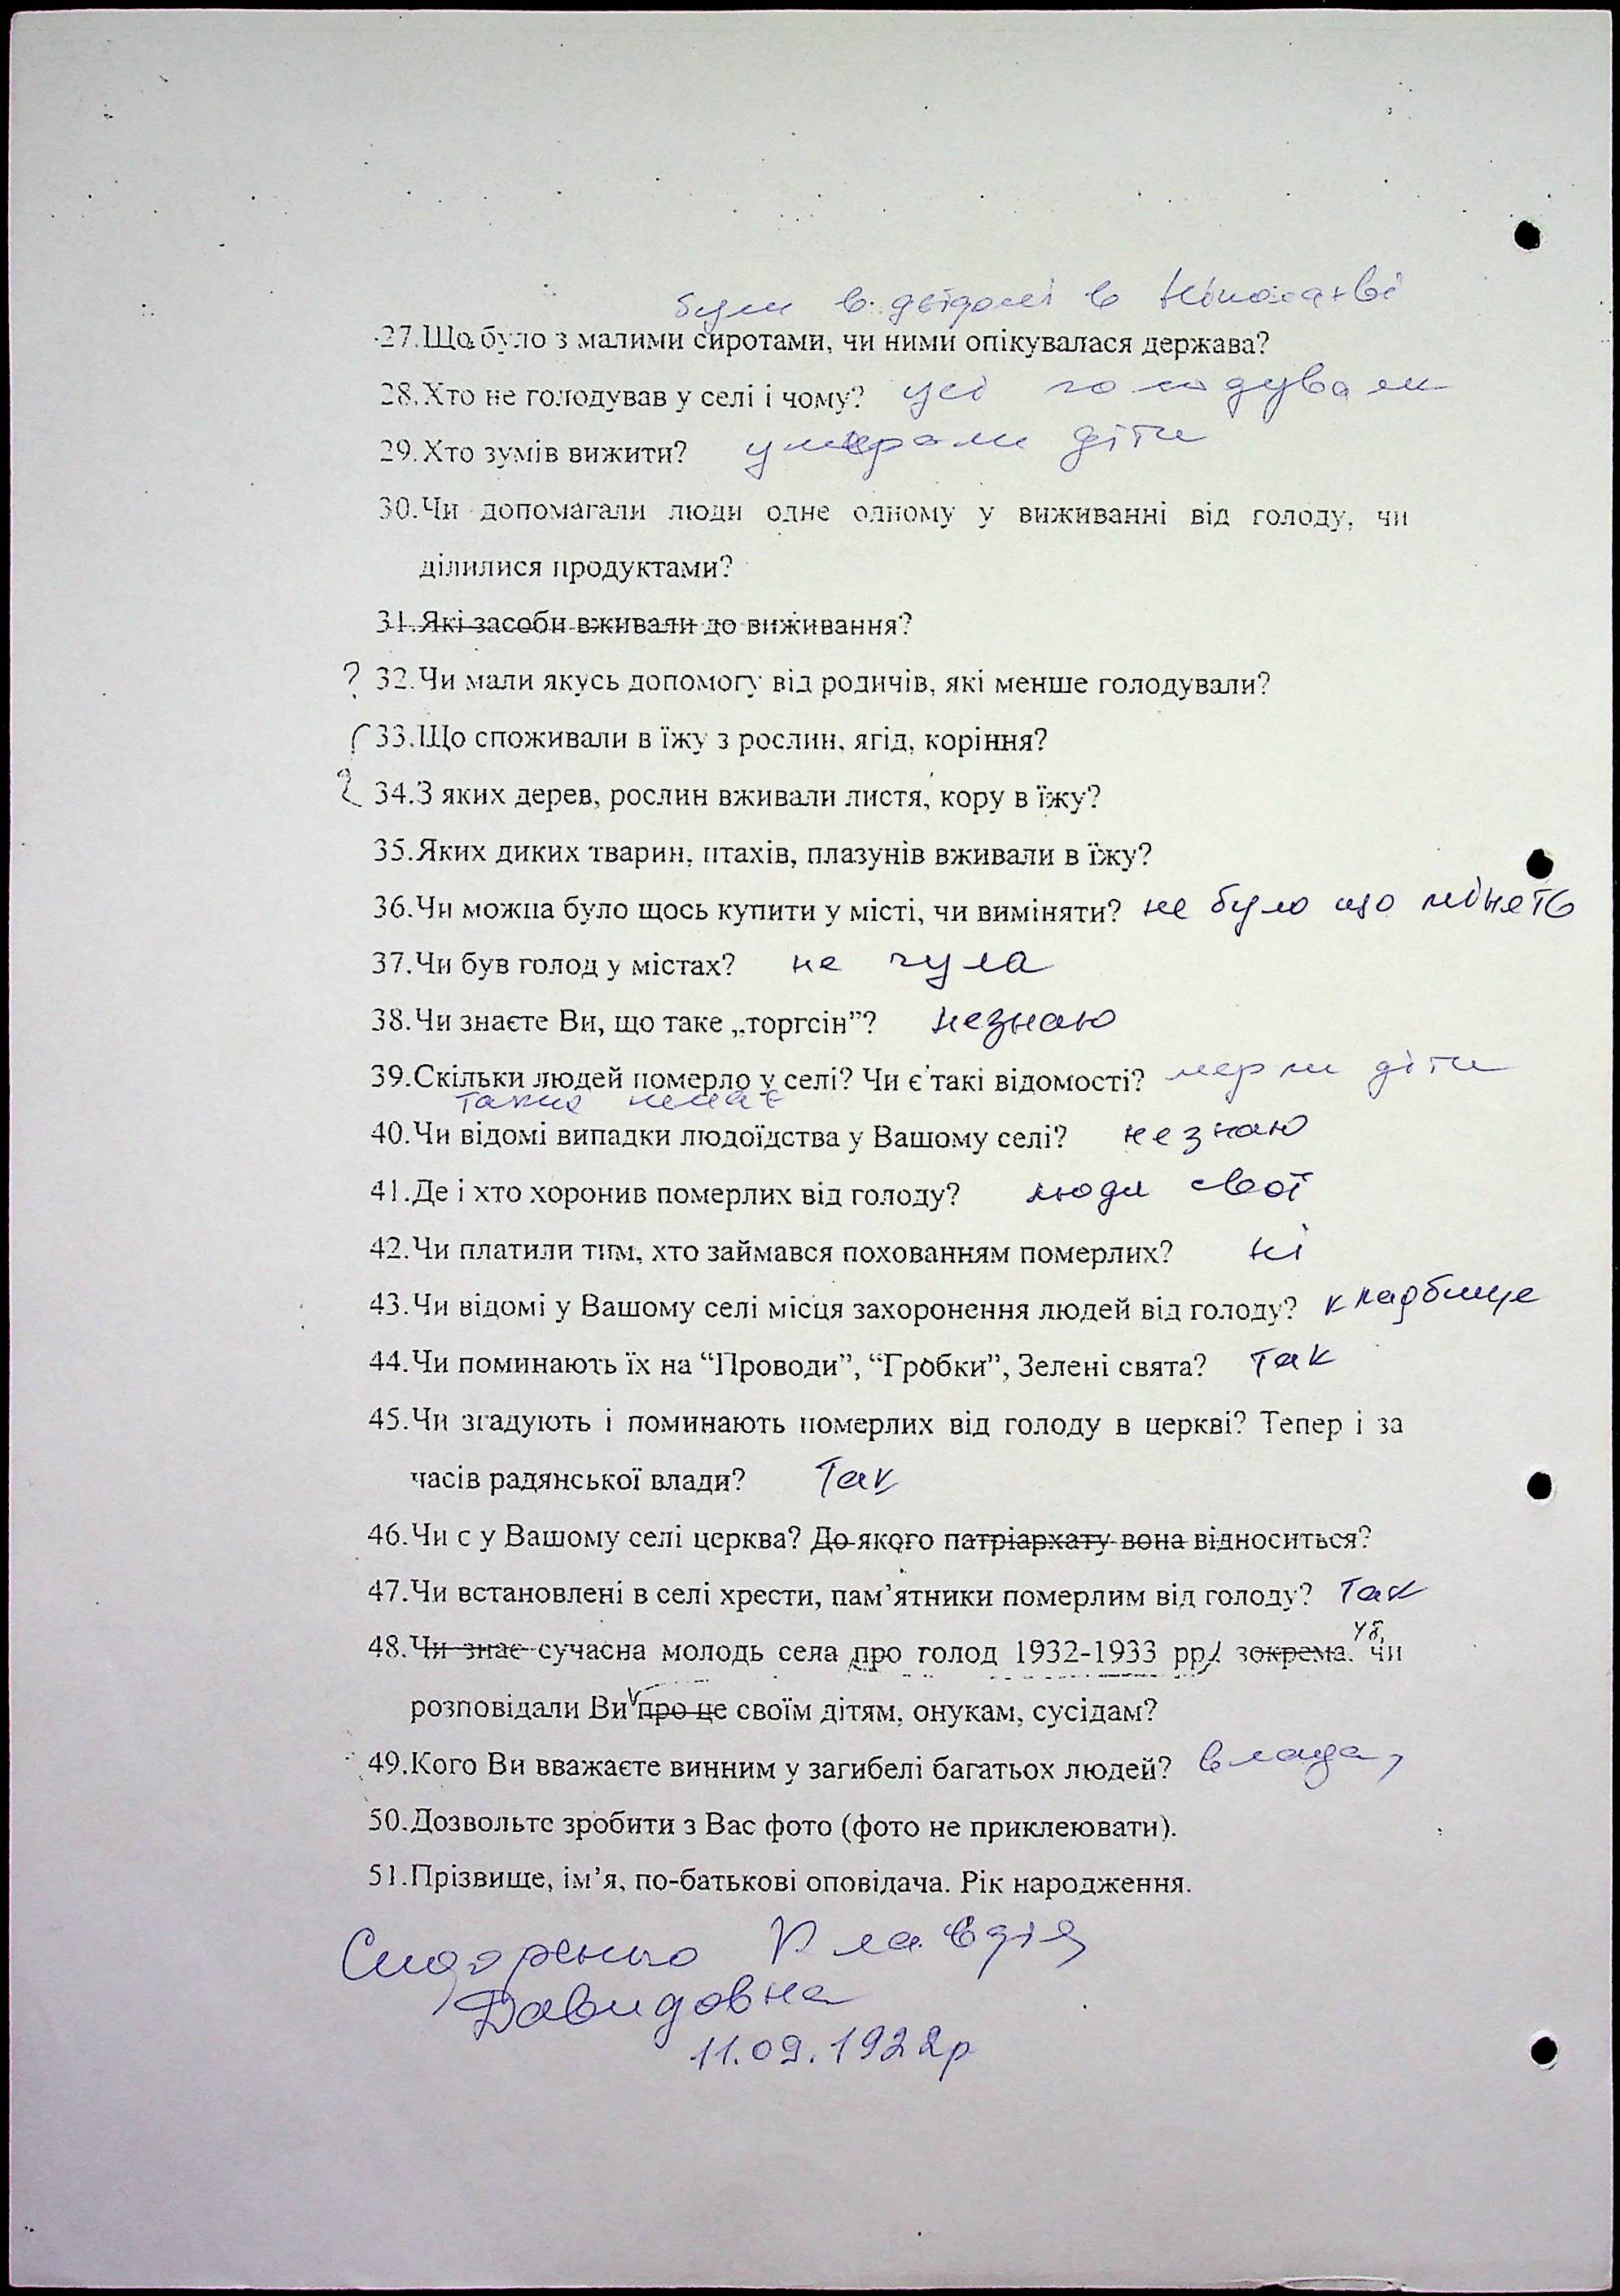 були в дєтдомі в
27.Що було з малими сиротами, чи ними опікувалася держава?
28.Хто не голодував у селі і чому? усі голодували
29.Хто зумів вижити? умерали діти
30.Чи допомагали люди одне одному у виживанні від голоду, чи
ділилися продуктами?
31.Які засоби вживали до виживання?
? 32.Чи мали якусь допомогу від родичів, які менше голодували?
33.Що споживали в їжу з рослин, ягід, коріння?
34.З яких дерев, рослин вживали листя, кору в їжу?
35.Яких диких тварин, птахів, плазунів вживали в їжу?
36.Чи можна було щось купити у місті, чи виміняти? не було що мінять
37.Чи був голод у містах? не чула
38.Чи знаєте Ви, що таке „торгсін”? незнаю
39.Скільки людей померло у селі? Чи є такі відомості? мерли діти
таких немає
40.Чи відомі випадки людоїдства у Вашому селі? незнаю
41.Де і хто хоронив померлих від голоду? люди свої
42.Чи платили тим, хто займався похованням померлих? ні
43.Чи відомі у Вашому селі місця захоронення людей від голоду? кладбище
44.Чи поминають їх на “Проводи”, “Гробки”, Зелені свята? так
45.Чи згадують і поминають померлих від голоду в церкві? Тепер і за
часів радянської влади? Так
46.Чи є у Вашому селі церква? До якого патріархату вона відноситься?
47.Чи встановлені в селі хрести, пам’ятники померлим від голоду? Так
48.Чи знає сучасна молодь села про голод 1932-1933 рр. зокрема, чи
розповідали Ви про це своїм дітям, онукам, сусідам?
49.Кого Ви вважаєте винним у загибелі багатьох людей? влада,
50.Дозвольте зробити з Вас фото (фото не приклеювати).
51.Прізвище, ім’я, по-батькові оповідача. Рік народження.
Сидоренко Клавдія
Давидовна
11.09.1922р